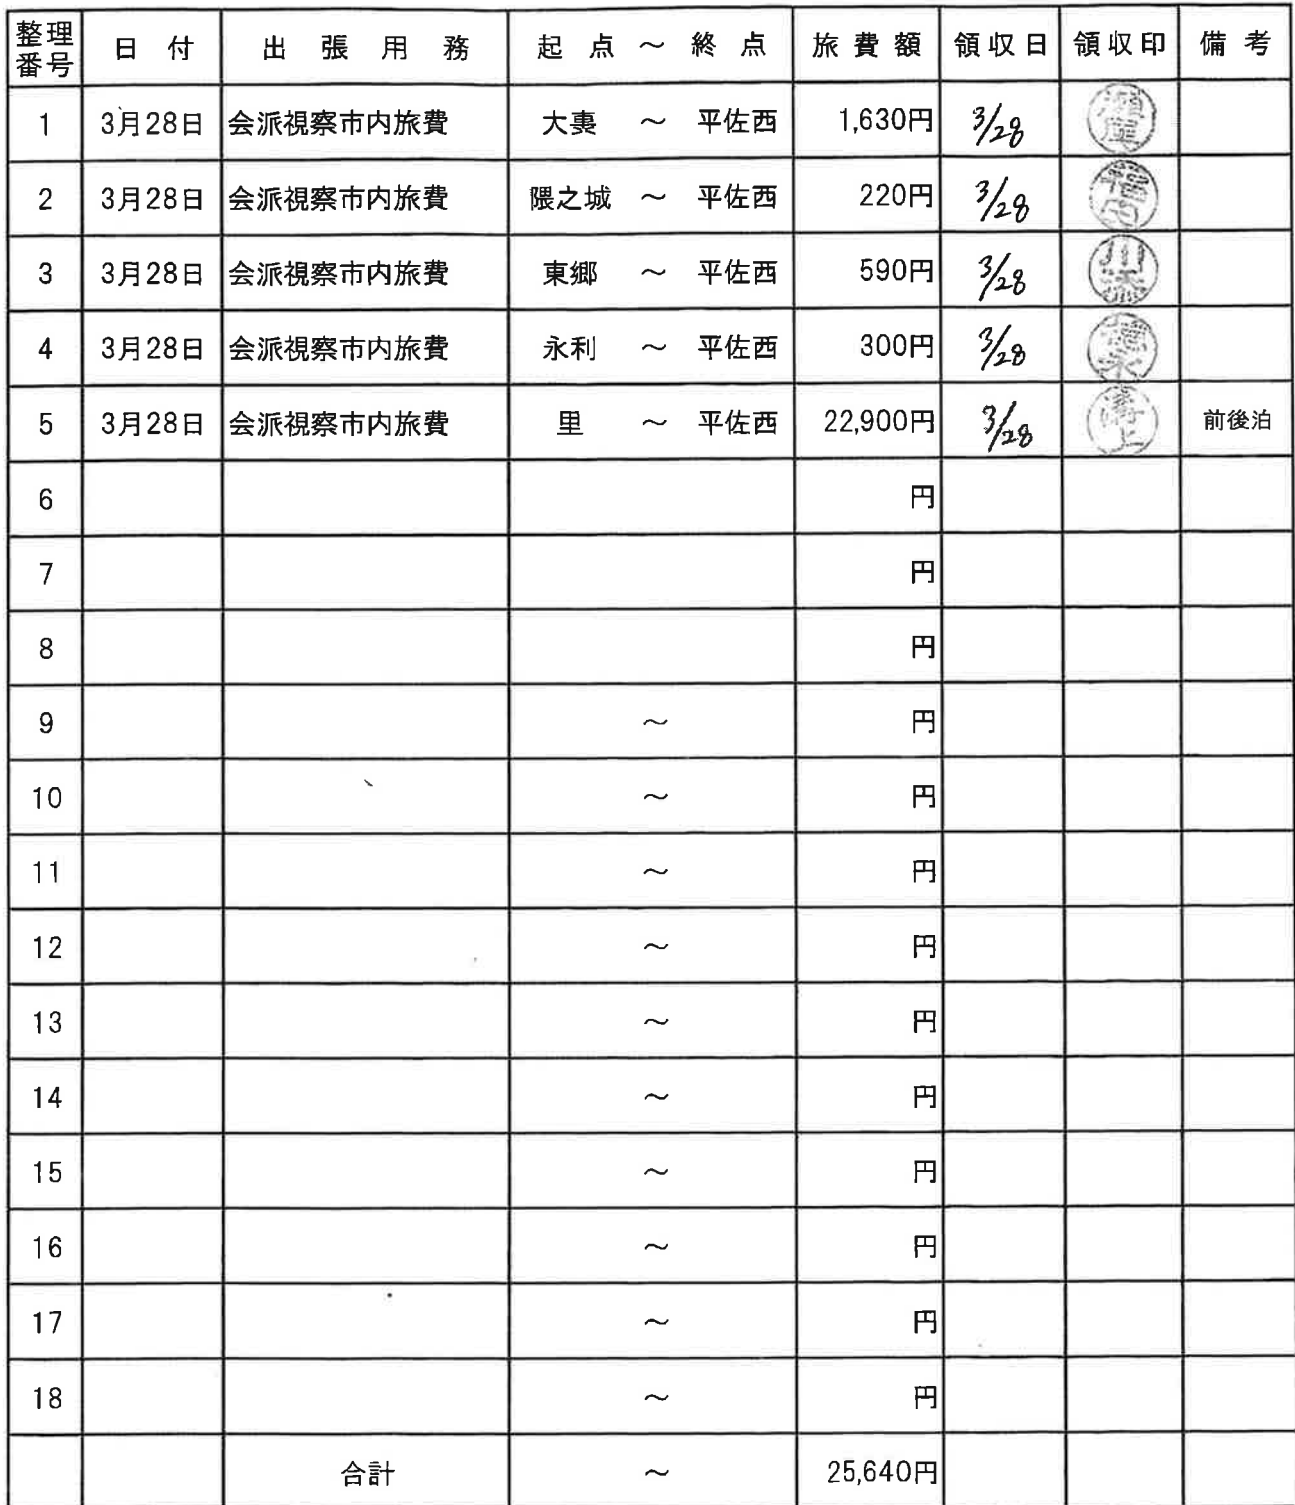 整理番号 日付 出張用務 起点～終点 旅費額 領収日 領収印 備考
1 3月28日 会派視察市内旅費 大裏 ～ 平佐西 1,630円 3/28
2 3月28日 会派視察市内旅費 隈之城 ～ 平佐西 220円 3/28
3 3月28日 会派視察市内旅費 東郷 ～ 平佐西 590円 3/28 川添
4 3月28日 会派視察市内旅費 永利 ～ 平佐西 300円 3/28
5 3月28日 会派視察市内旅費 里 ～ 平佐西 22,900円 3/28 前後泊
6 円
7 円
8 円
9 ～ 円
10 ～ 円
11 ～ 円
12 ～ 円
13 ～ 円
14 ～ 円
15 ～ 円
16 ～ 円
17 ～ 円
18 ～ 円
合計 ～ 25,640円